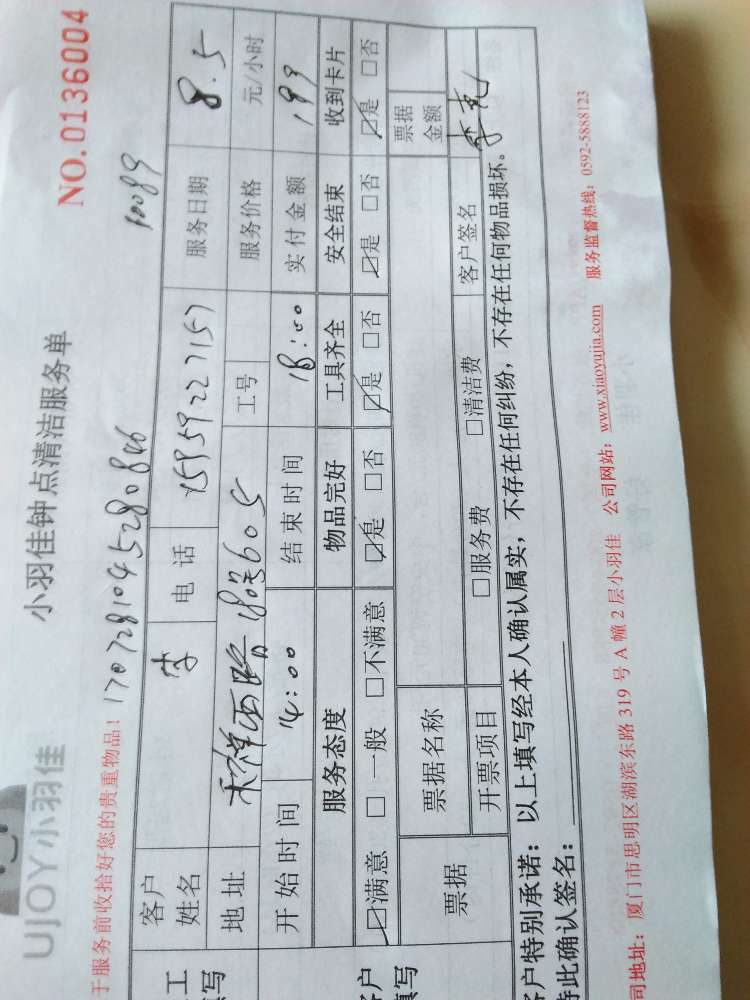 UJOY小羽佳
小羽佳钟点清洁服务单
NO.0136004
于服务前收拾好您的贵重物品!
1707281045280846
10089
工
填写
客户姓名 李 电话 15959227157 服务日期 8.5
地址 180号605 工号 服务价格 元/小时
开始时间 14:00 结束时间 18:00 实付金额 199
服务态度 物品完好 工具齐全 安全结束 收到卡片
客户
填写
☑满意 □一般 □不满意 ☑是 □否 ☑是 □否 ☑是 □否 ☑是 □否
票据 票据名称 票据金额
开票项目 □服务费 □清洁费 客户签名 李
客户特别承诺:以上填写经本人确认属实,不存在任何纠纷,不存在任何物品损坏。
特此确认签名:
司地址:厦门市思明区湖滨东路319号A幢2层小羽佳 公司网站:www.xiaoyujia.com 服务监督热线:0592-5888123